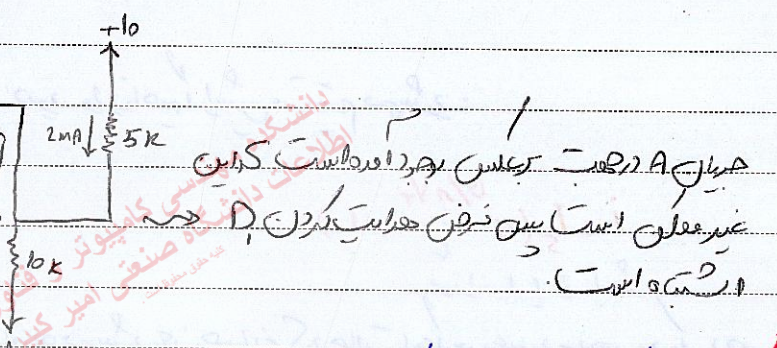 +10
2mA
5K
جریان A در جهت برعکس بوجود آورده است که این
غیر ممکن است پس فرض هدایت کردن D1
اشتباه است.
10K
دانشکده مهندسی کامپیوتر و
اطلاعات دانشگاه صنعتی امیر کبیر